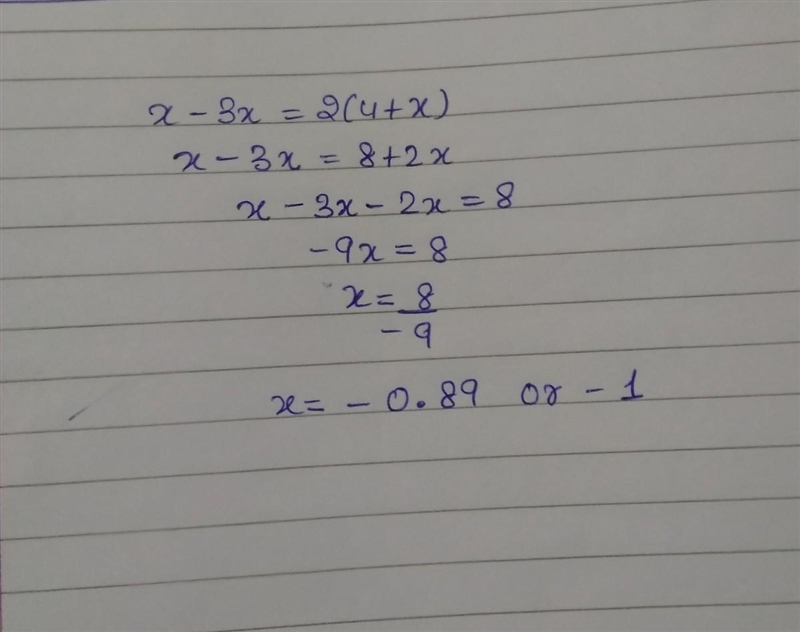 x - 3x = 2(4+x)
x - 3x = 8+2x
x - 3x - 2x = 8
-9x = 8
x = 8/-9
x = - 0.89 or - 1